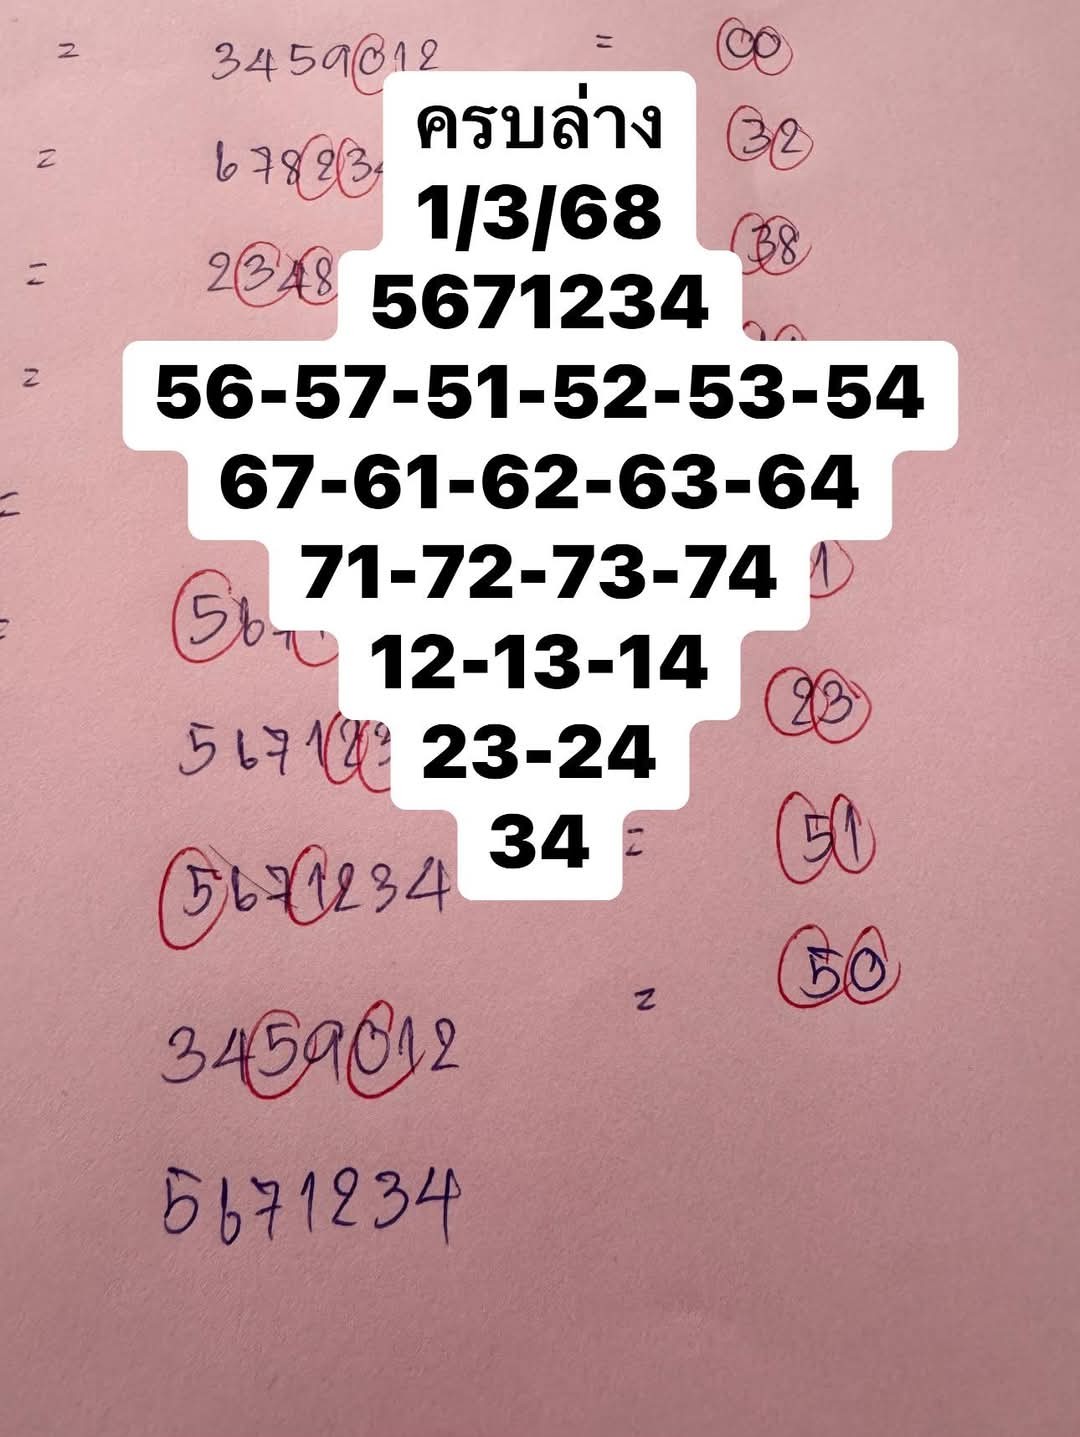 = 3459012 = 00
ครบล่าง
= 67823 32
1/3/68
= 2348 38
5671234
=
56-57-51-52-53-54
67-61-62-63-64
=
71-72-73-74 1
567
12-13-14
23
567123
23-24
34
= 51
5671234
= 50
3459012
5671234